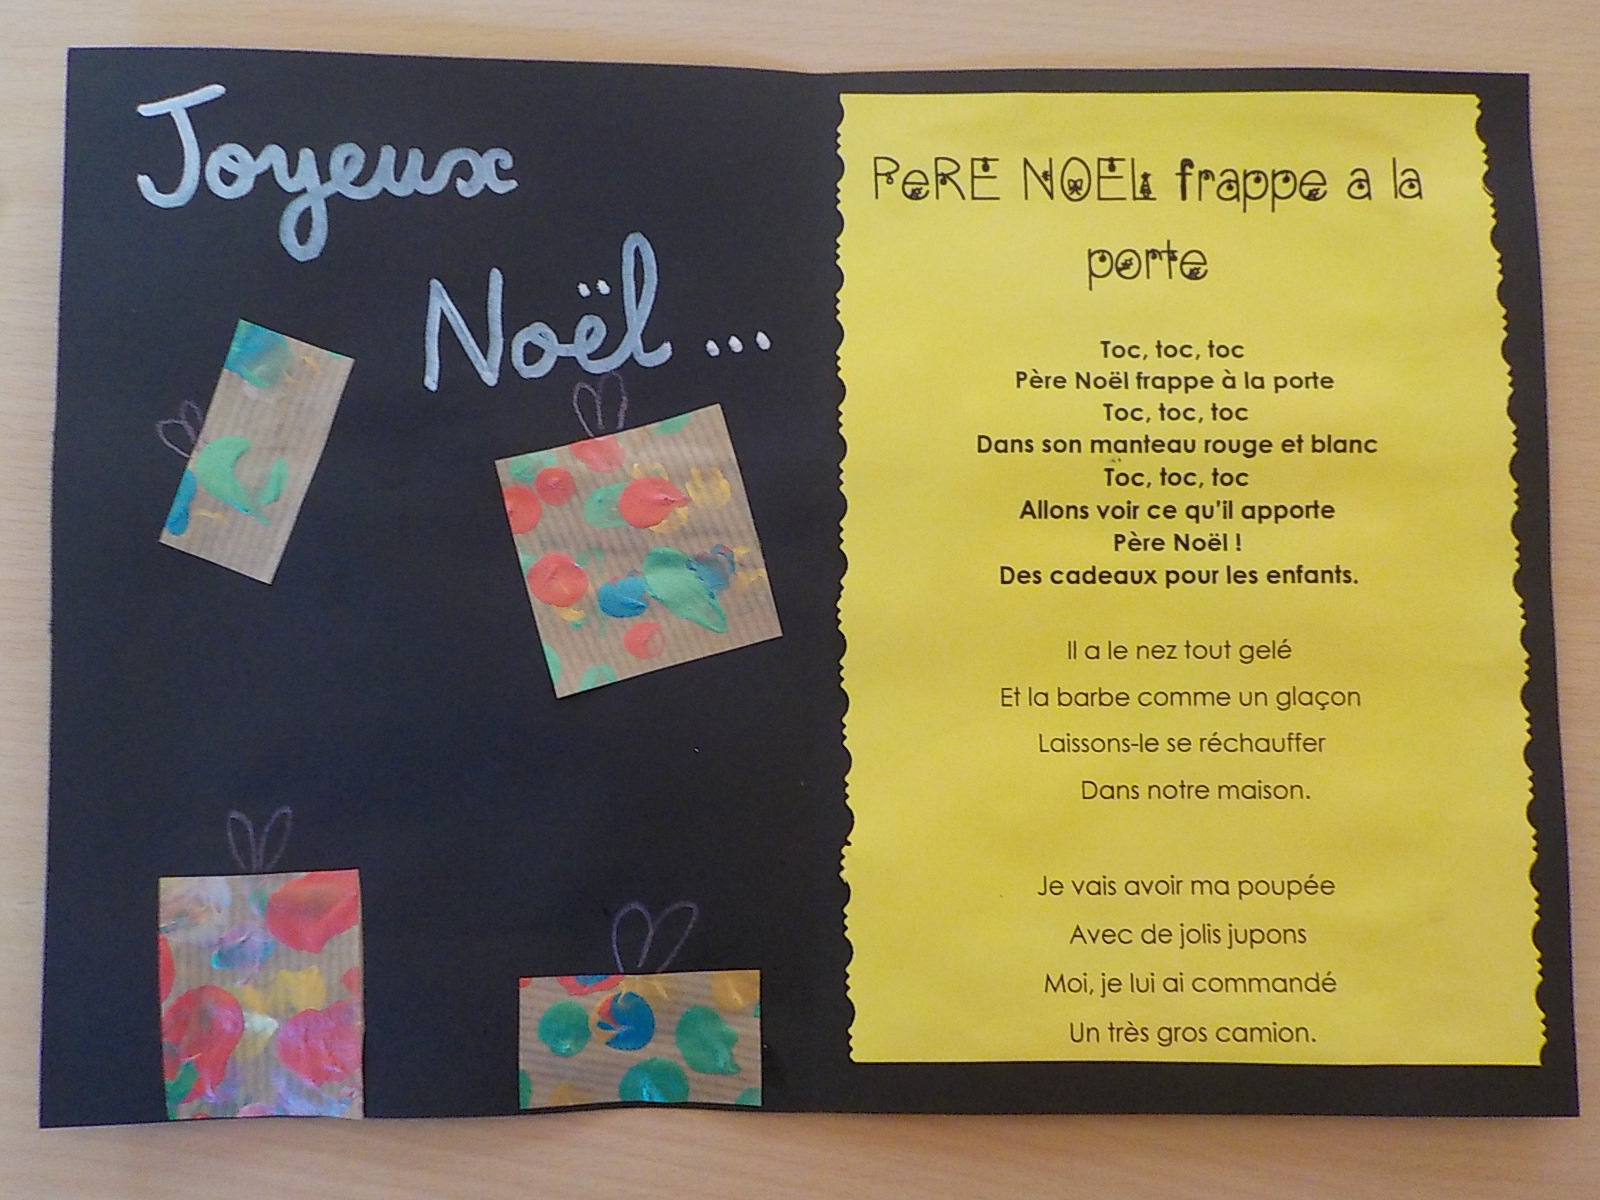 Joyeux
Noël...
PeRE NOEL frappe a la
porte
Toc, toc, toc
Père Noël frappe à la porte
Toc, toc, toc
Dans son manteau rouge et blanc
Toc, toc, toc
Allons voir ce qu'il apporte
Père Noël !
Des cadeaux pour les enfants.
Il a le nez tout gelé
Et la barbe comme un glaçon
Laissons-le se réchauffer
Dans notre maison.
Je vais avoir ma poupée
Avec de jolis jupons
Moi, je lui ai commandé
Un très gros camion.